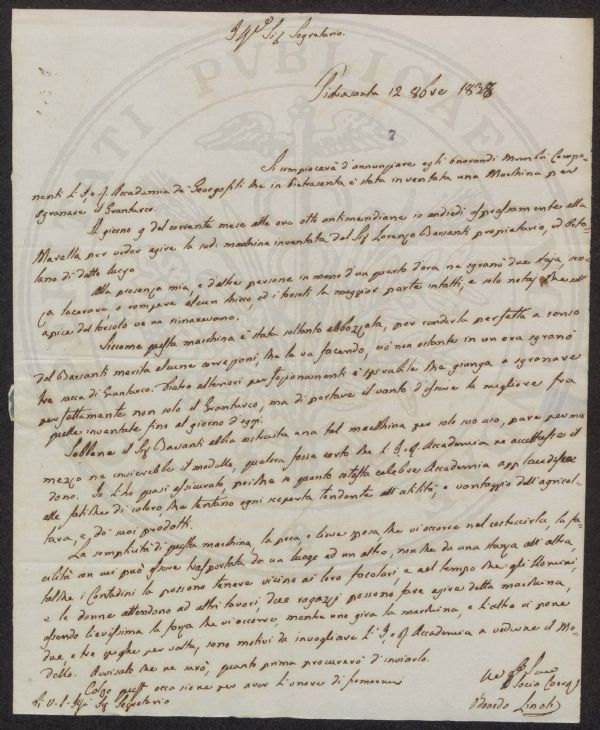 Sig. Segretario.
Pietrasanta 12 8bre 1838
7
Si compiacerà d'annunziare agli onorandi Membri Compo-
nenti l'I. e R. Accademia de Georgofili che in Pietrasanta è stata inventata una Macchina per
sgranare il Granturco.
Il giorno 9 del corrente mese alle ore otto antimeridiane io andiedi espressamente alla
Marella per veder agire la sud. macchina inventata dal Sig. Lorenzo Barsanti proprietario, ed Orto-
lano di detto luogo
Alla presenza mia, e d'altre persone in meno d'un quarto d'ora ne sgranò due staja, sen-
za lacerare, o rompere alcun chicco ed i torsoli la maggior parte intatti, e solo notaj che all'
apice del torsolo ve ne rimanevano.
Siccome questa macchina è stata soltanto abbozzata, per renderla perfetta a senso
del Barsanti merita alcune correzioni, che le va facendo, ciò non ostante in un ora sgranò
tre sacca di Granturco. Dietro ulteriori perfezionamenti è sperabile che giunga a sgranare
perfettamente non solo il Granturco, ma di portare il vanto d'essere la migliore fra
quelle inventate fino al giorno d'oggi.
Sebbene il Sig. Barsanti abbia costruita una tal macchina per solo suo uso, pure per mio
mezzo ne invierebbe il modello, qualora fosse certo che l'I. e R. Accademia ne accettasse il
dono. Io l'ho quasi assicurato, poiché so quanto cotesta celebre Accademia applaudisca
alle fatiche di coloro, che tentano ogni scoperta tendente all'utilità, e vantaggio dell'agricol-
tura, e de suoi prodotti.
La semplicità di questa macchina la poca, e lieve spesa, che vi occorre nel costruirla, la fa-
cilità con cui può essere trasportata da un luogo ad un altro, non che da una stanza all'altra,
talché i Contadini la possono tenere vicino ai loro focolari, e nel tempo che gli Uomini,
e le donne attendono ad altri lavori, due ragazzi possono fare agire detta macchina,
essendo lievissima la forza che vi occorre, mentre uno gira la macchina, e l'altro vi pone
due, o tre spighe per volta, sono motivi da invogliare l'I. e R. Accademia a vederne il Mo-
dello. Avvisato che ne sarò, quanto prima procurerò di inviarlo.
Colgo quest'occasione per aver l'onore di firmarmi
Di V. S. Sig. Segretario
Socio Corrisp.
Odoardo Linoli